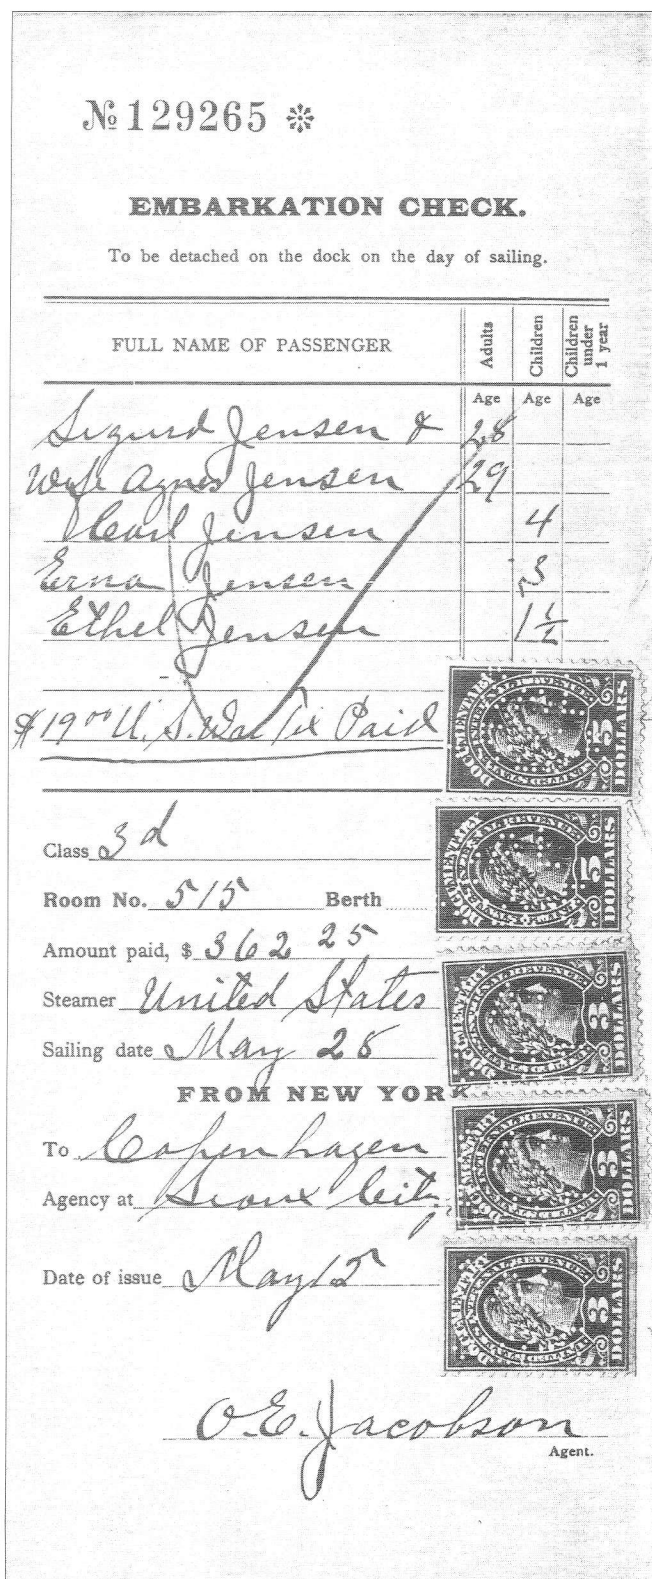 № 129265 ❊
EMBARKATION CHECK.
To be detached on the dock on the day of sailing.
FULL NAME OF PASSENGER Adults Children Children under 1 year
Age Age Age
Sigurd Jensen & 28
Wife Agnes Jensen 29
Carl Jensen 4
Erna Jensen 3
Ethel Jensen 1½
$19 00 U. S. War Tax Paid
Class 3d
Room No. 515 Berth
Amount paid, $ 362 25
Steamer United States
Sailing date May 28
FROM NEW YORK
To Copenhagen
Agency at Sioux City
Date of issue May 15
O. E. Jacobson
Agent.
DOCUMENTARY
UNITED STATES INTERNAL REVENUE
5 DOLLARS
DOCUMENTARY
UNITED STATES INTERNAL REVENUE
5 DOLLARS
DOCUMENTARY
UNITED STATES INTERNAL REVENUE
3 DOLLARS
DOCUMENTARY
UNITED STATES INTERNAL REVENUE
3 DOLLARS
DOCUMENTARY
UNITED STATES INTERNAL REVENUE
3 DOLLARS